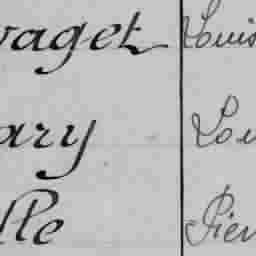 vaget Louis
ary Lou
lle Pier